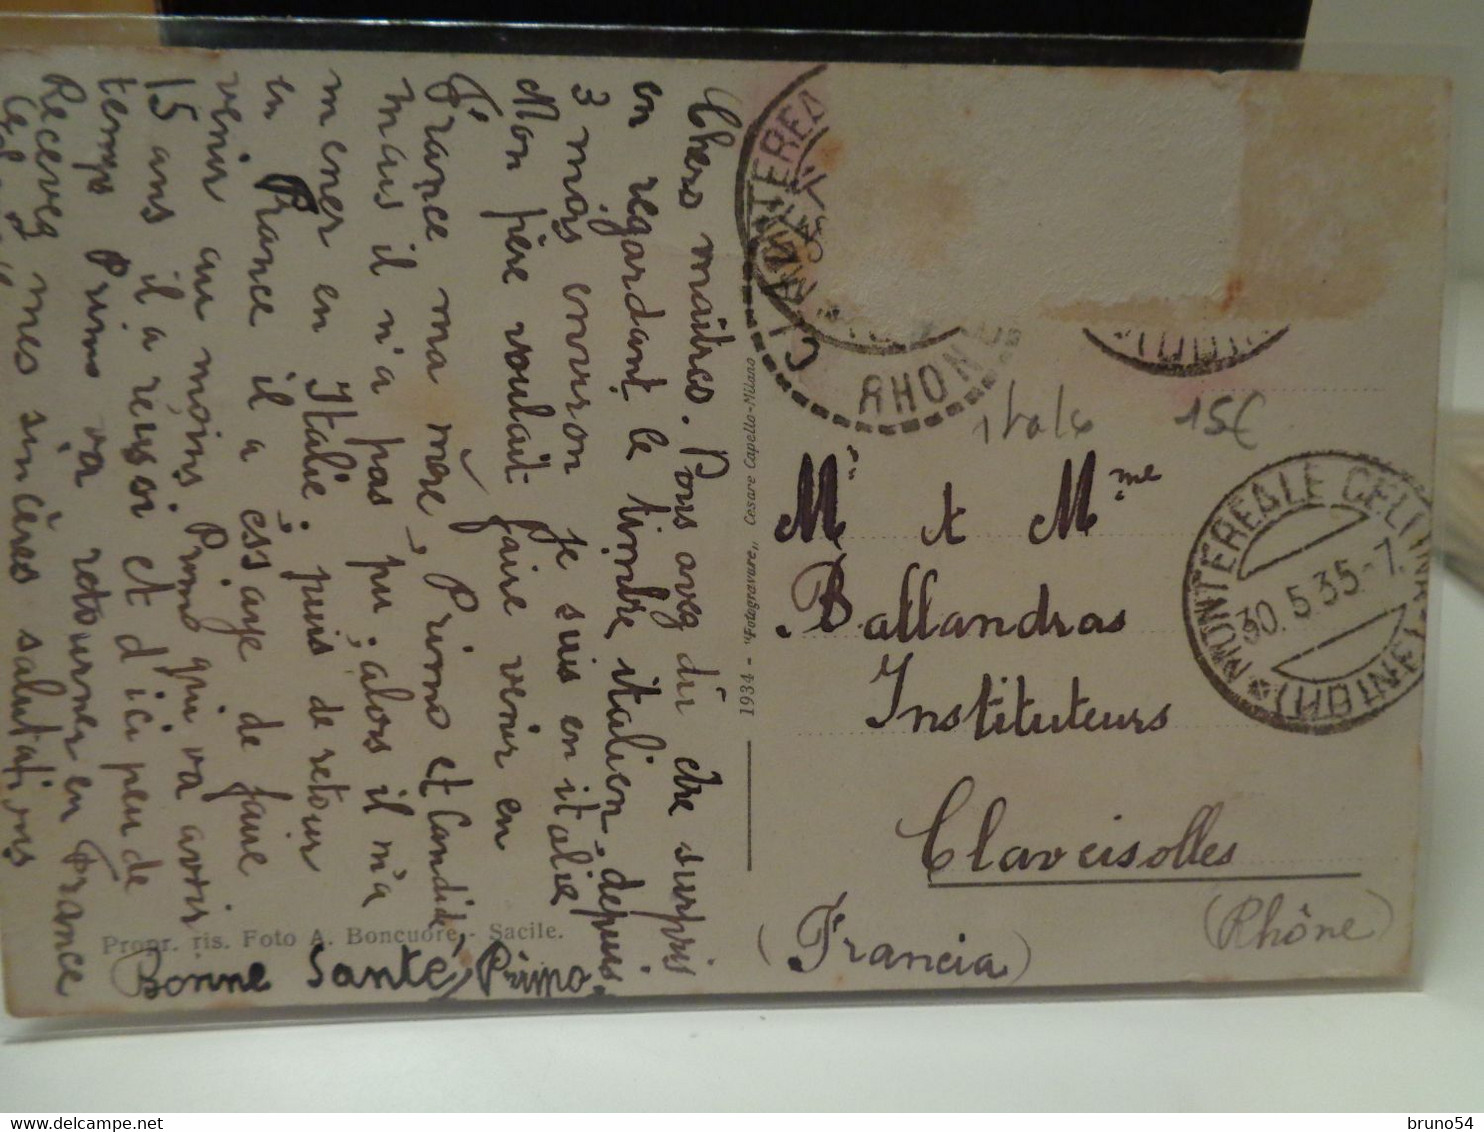 Chers maîtres. Vous avez dû être surpris
en regardant le timbre italien, depuis
3 mois environ je suis en italie
Mon père voulait faire venir en
France ma mère, Primo et Candide
mais il n'a pas pu, alors il m'a
mener en Italie. puis de retour
en France il a éssaye de faire
venir au moins Primo qui va avoir
15 ans il a réussi et d'ici peu de
temps Primo va retourner en France
Recevez mes sincères salutations
Bonne Santé, Primo.
Propr. ris. Foto A. Boncuore - Sacile.
1934 - "Fotogravure„ Cesare Capello-Milano
RHONE
15€
Mr & Mme
Ballandras
Instituteurs
Claveisolles
(Rhône)
(Francia)
MONTEREALE CELLINA (UDINE)
30.5.35.-7.
bruno54